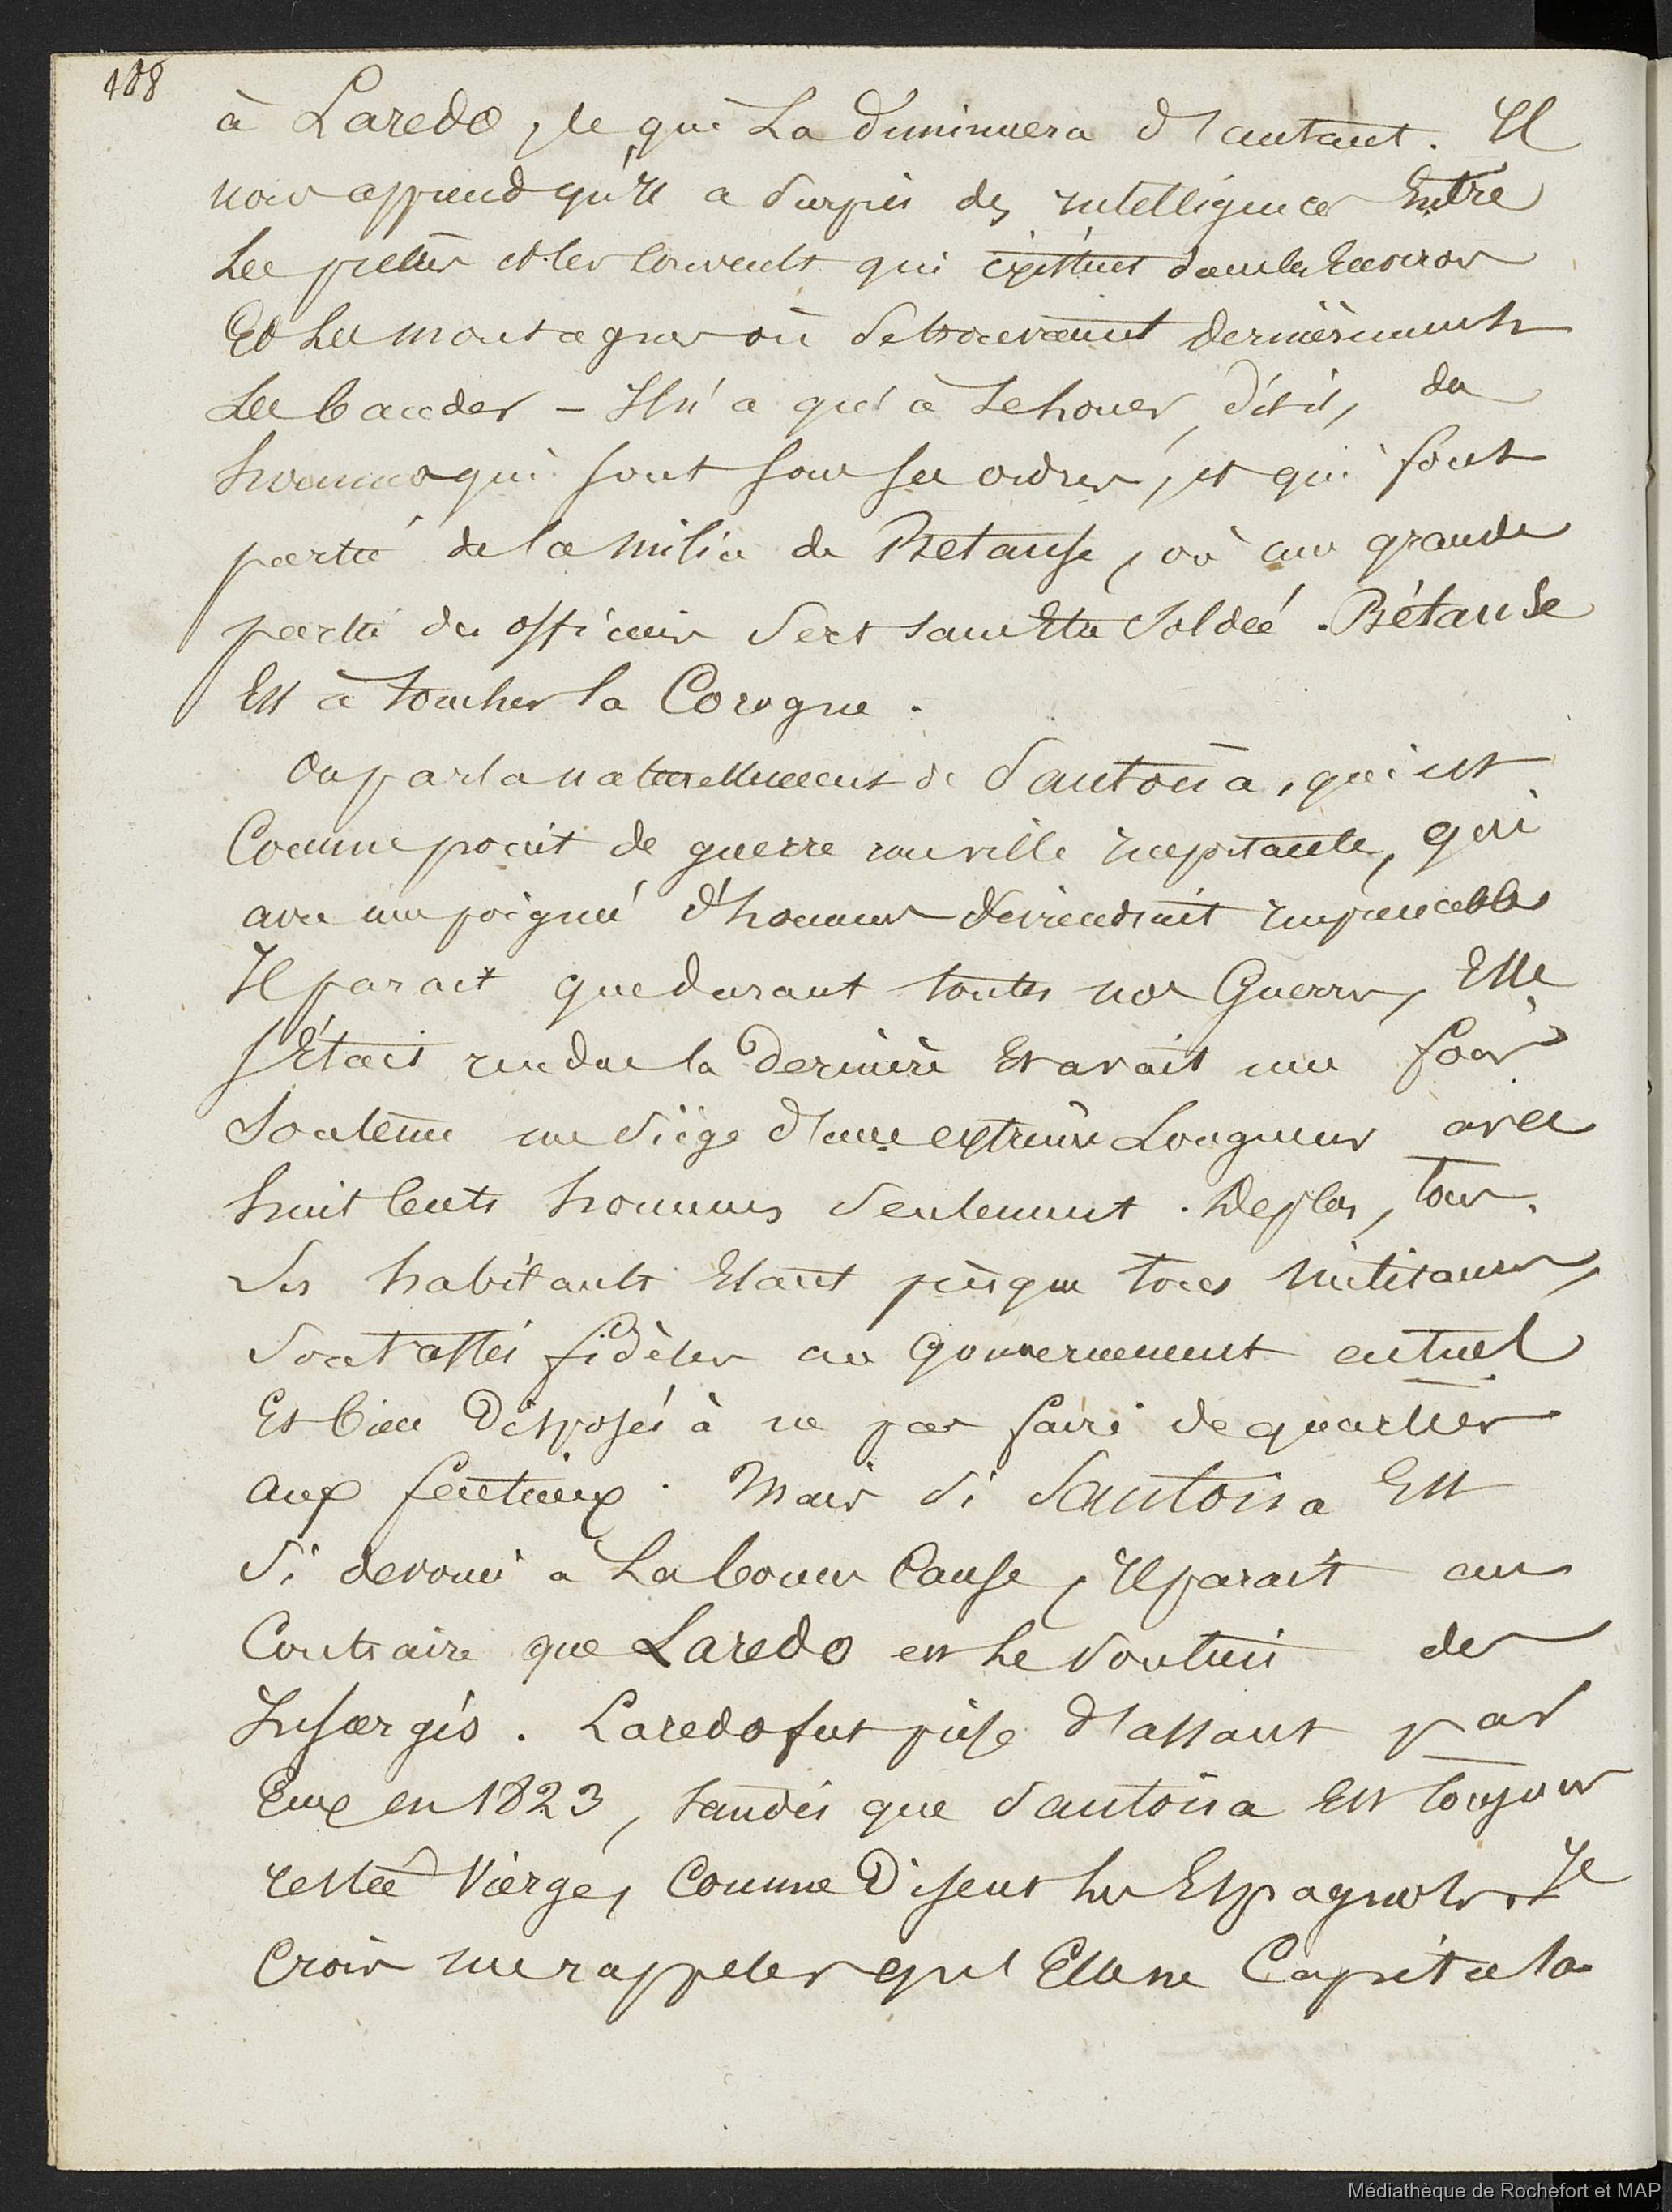 108
à Laredo, ce qui La diminuera d'autant. Il
nous apprend qu'il a surpris des intelligences Entre
Les prêtres et les Couvents qui existent dans les Environs
Et Les montagnes où se trouvaient dernièrement
Les bandes – Il n'a qu'à se louer, dit-il, des
hommes qui sont sous ses ordres, et qui font
partie de la milice de Betanse, où une grande
partie des officiers sert sans être soldée. Bétanse
Est à toucher la Corogne.
On parla naturellement de Santoña, qui est
Comme point de guerre une ville importante, qui
avec une poignée d'hommes deviendrait imprenable
Il parait que durant toutes nos Guerres, Elle
s'Etait rendue la dernière Et avait une fois
Soutenu un siège d'une extrême Longueur avec
huit Cents hommes seulement. De plus, tous
Ses habitants étant presque tous militaires,
Sont restés fidèles au gouvernement actuel
Et bien disposés à ne pas faire de quartier
aux factieux. Mais si Santoña Est
Si dévouée à La bonne Cause, Il parait au
Contraire que Laredo est le soutien des
Insurgés. Laredo fut prise d'assaut par
Eux en 1823, tandis que Santoña Est toujours
restée Vierge, Comme Disent les Espagnols. Je
Crois me rappeler qu'Elle ne Capitula
Médiathèque de Rochefort et MAP